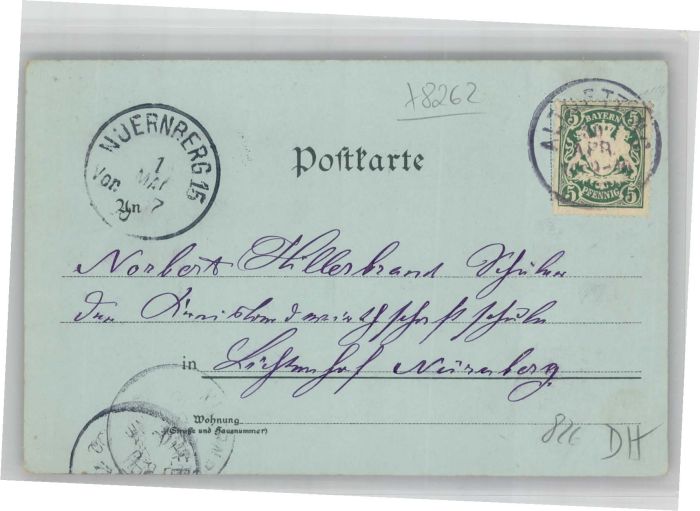 18262
NUERNBERG 15
1
MAI
Vor. 7
An
Postkarte
APR
5 5
BAYERN
5 5
PFENNIG
Norbert Hillerbrand Schüler
der Kreislandwirthschaftschule
in Lichtenhof Nürnberg
Wohnung
(Straße und Hausnummer)
826
DH